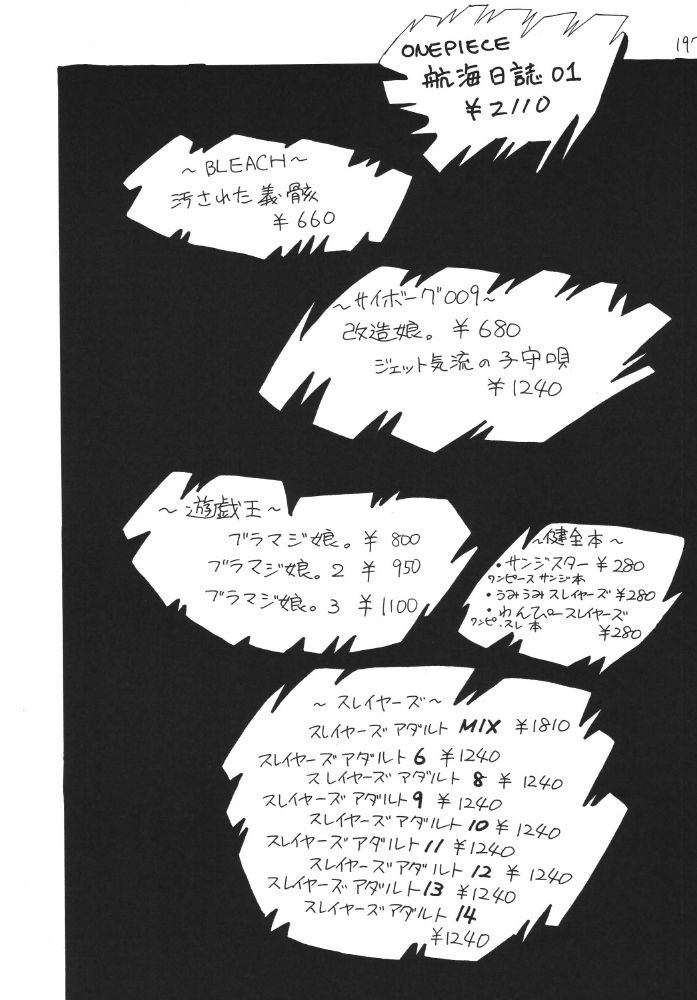 197
ONEPIECE
航海日誌01
¥2110
～BLEACH～
汚された義骸
¥660
～サイボーグ009～
改造娘。 ¥680
ジェット気流の子守唄
¥1240
～遊戯王～
ブラマジ娘。 ¥ 800
ブラマジ娘。2 ¥ 950
ブラマジ娘。3 ¥1100
～健全本～
・サンジスター ¥280
ワンピース サンジ本
・うみうみスレイヤーズ ¥280
・わんぴースレイヤーズ
ワンピ.スレ本
¥280
～スレイヤーズ～
スレイヤーズアダルト MIX ¥1810
スレイヤーズアダルト 6 ¥1240
スレイヤーズアダルト 8 ¥1240
スレイヤーズアダルト 9 ¥1240
スレイヤーズアダルト 10 ¥1240
スレイヤーズアダルト 11 ¥1240
スレイヤーズアダルト 12 ¥1240
スレイヤーズアダルト 13 ¥1240
スレイヤーズアダルト 14
¥1240